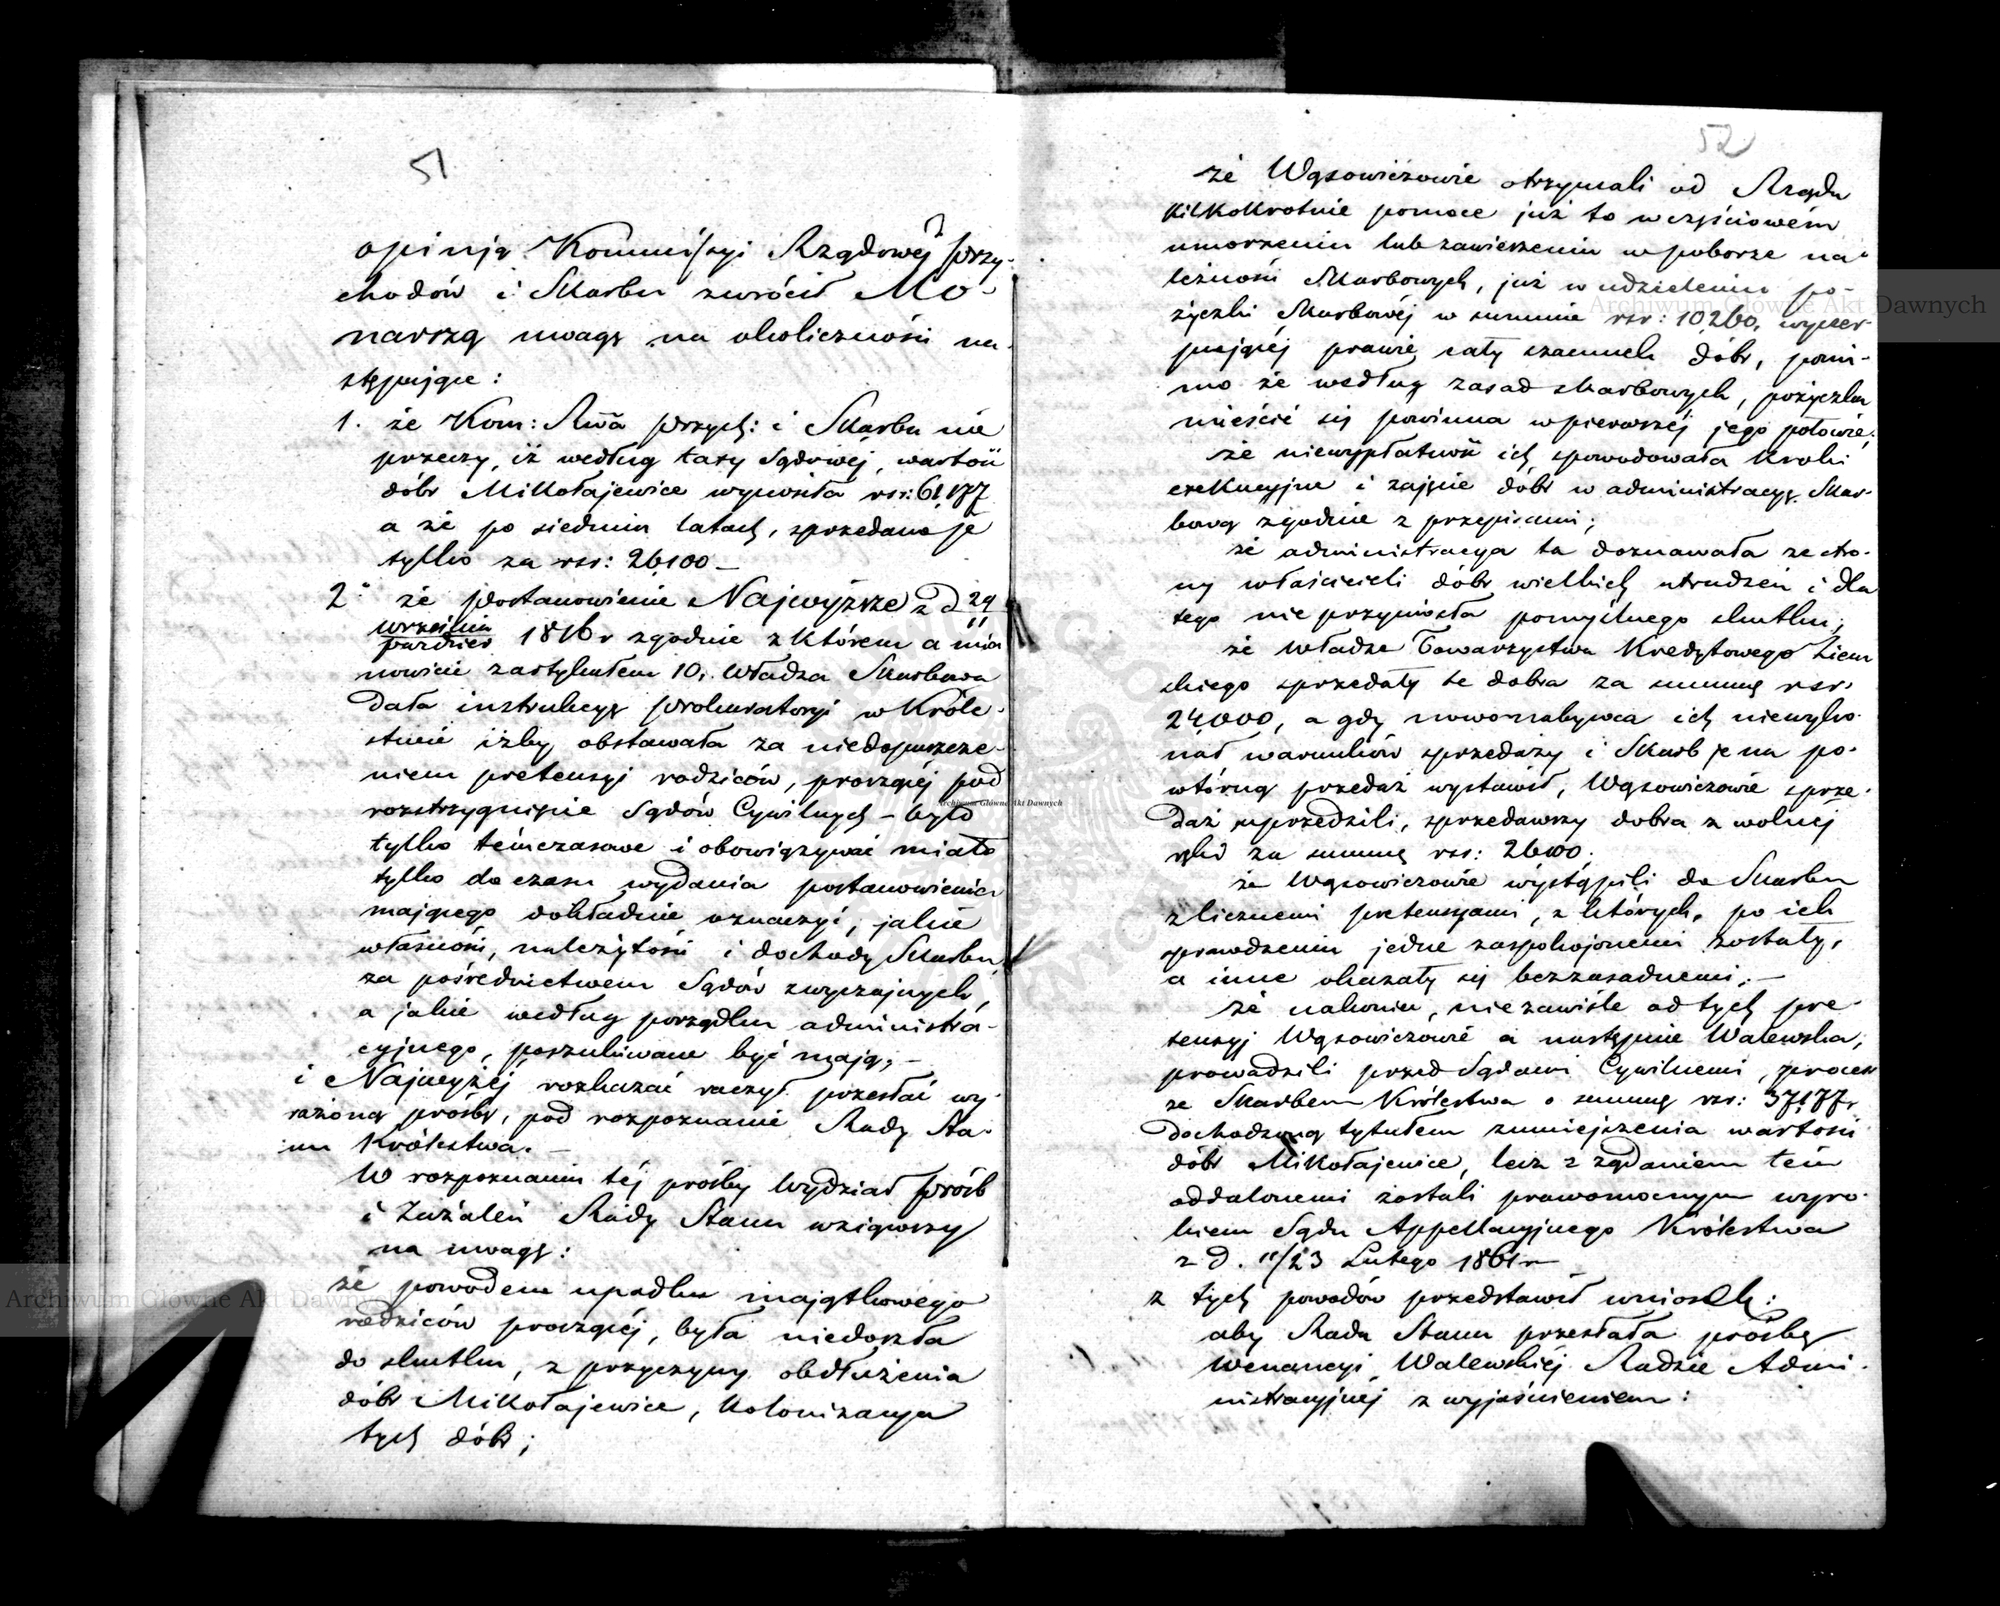 51
opinją Kommissyi Rządowéj Przy-
chodów i Skarbu zwrócił Mo-
narszą uwagę na okoliczności na-
stępujące:
1. że Kom: Rwa Przych: i Skarbu nie
przeczy, iż według taxy Sądowéj, wartość
dóbr Mikołajewice wynosiła rsr: 61177
a że po siedmiu latach, sprzedano je
tylko za rsr: 26100 –
2° że postanowienie Najwyższe z d 29
września
paździer 1816 r zgodnie z którem a mia
nowicie z artykułem 10, Władza Skarbowa
dała instrukcyę Prokuratoryi w Króle-
stwie iżby obstawała za niedopuszcze-
niem pretensyi rodziców, proszącéj pod
rozstrzygnięcie Sądów Cywilnych – było
tylko témczasowe i obowiązywać miało
tylko do czasu wydania postanowienia
mającego dokładnie oznaczyć, jakie
własności, należytości i dochody Skarbu,
za pośrednictwem Sądów zwyczajnych,
a jakie według porządku administra-
cyjnego, poszukiwane być mają, –
i Najwyżéj rozkazać raczył przesłać wy-
rażoną prośbę, pod rozpoznanie Rady Sta-
nu Królestwa. –
W rozpoznaniu téj prośby Wydział Prośb
i Zażaleń Rady Stanu wziąwszy
na uwagę:
że powodem upadku majątkowego
rodziców proszącéj, była niedoszła
do skutku, z przyczyny obdłużenia
dóbr Mikołajewice, kolonizacya
tych dóbr;
52
że Wąsowiczowie otrzymali od Rządu
kilkokrotnie pomoce już to w częściowém
umorzeniu lub zawieszeniu w poborze na-
leżności Skarbowych, już w udzieleniu po-
życzki Skarbowéj w summie rsr: 10260, wyczer-
pującéj prawie cały szacunek dóbr, pomi-
mo że według zasad skarbowych, pożyczka
mieścić się powinna w pierwszéj jego połowie.
że niewypłatność ich spowodowała kroki
exekucyjne i zajęcie dóbr w administracyę Skar-
bową zgodnie z przepisami;
że administracya ta doznawała ze stro-
ny właścicieli dóbr wielkich utrudzeń i dla
tego nie przyniosła pomyślnego skutku;
że Władze Towarzystwa Kredytowego Ziem
skiego sprzedały te dobra za summę rsr:
24,000, a gdy nowonabywca ich niewyko-
nał warunków sprzedaży i Skarb je na po-
wtórną przedaż wystawił, Wąsowiczowie sprze-
daż uprzedzili, sprzedawszy dobra z wolnéj
ręki za summę rsr: 26100;
że Wąsowiczowie wystąpili do Skarbu
z licznemi pretensyami, z których, po ich
sprawdzeniu jedne zaspokojonemi zostały,
a inne okazały się bezzasadnemi; –
że nakoniec, niezawiśle od tych pre-
tensyj Wąsowiczowie a następnie Walewska,
prowadzili przed Sądami Cywilnemi, process
ze Skarbem Królestwa o summę rsr: 37177,
dochodzoną tytułem zmniejszenia wartości
dóbr Mikołajewice, lecz z żądaniem tém
oddalonemi zostali prawomocnym wyro-
kiem Sądu Appellacyjnego Królestwa
z d. 11/23 Lutego 1861 r
z tych powodów przedstawił wniosek:
aby Rada Stanu przesłała prośbę
Wenancyi Walewskiéj Radzie Admi-
nistracyjnéj z wyjaśnieniem:
Archiwum Główne Akt Dawnych
Archiwum Główne Akt Dawnych
Archiwum Główne Akt Dawnych